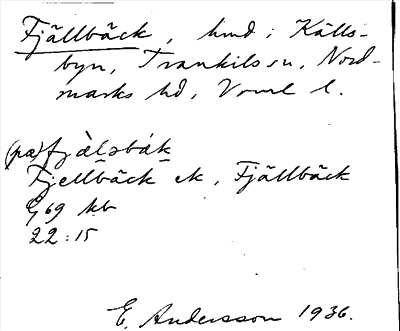 Fjällbäck, hmd i Källs-
byn, Trankils sn, Nord-
marks hd, Vrml l.
(pæ) fjæ̀lsbäk
Fjellbäck ek, Fjällbäck
G 69 kb
22:15
E. Andersson 1936.